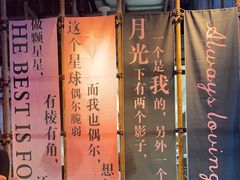 做颗星星，
有棱有角，还
THE BEST IS FO
这个星球偶尔脆弱
而我也偶尔想
月光下有两个影子，
一个是我的，另外一个
Always loving